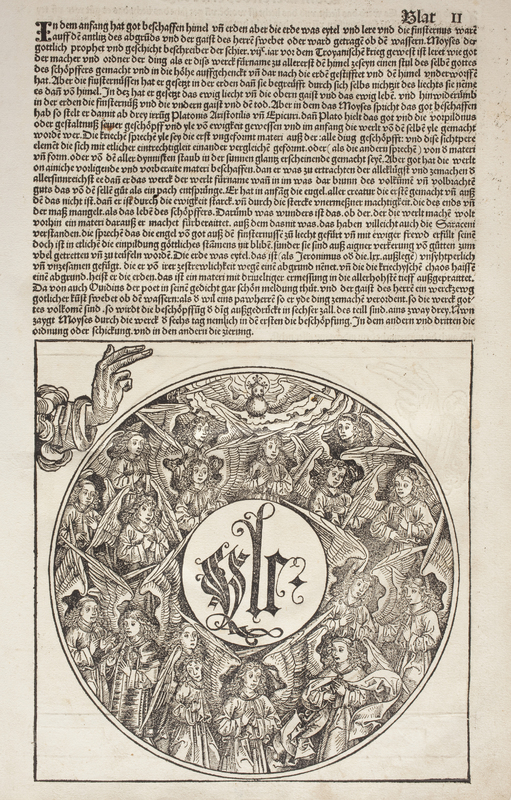 Blat II
In dem anfang hat got beschaffen himel vñ erden aber die erde was eytel vnd lere vnd die finsternus warẽ
auff dẽ antlitz des abgrũds vnd der gaist des herrẽ swebet oder ward getragẽ ob dẽ wassern. Moyses der
gotlich prophet vnd geschicht beschreiber der schier. vijᶜ. iar vor dem Troyanischẽ krieg gewest ist leret wie got
der macher vnd ordner der ding als er diß werck fürname zu allererst dẽ himel
des schöpffers gemacht vnd in die höhe auffgehenckt vñ dar nach die erdẽ gestifftet vnd dẽ himel vnderworffẽ
hat. Aber die finsternussen hat er gesetzt in der erden dañ sie begreifft durch sich selbs nichtzit des liechts sie nemẽ
es dañ võ himel. In dez hat er gesetzt das ewig liecht vñ die obern gaist vnd das ewig lebẽ. vnd hinwiderumb
in der erden die finsternuß vnd die vndern gaist vnd dẽ tod. Aber in dem das Moyses spricht das got beschaffen
hab so stelt er damit ab drey irrũg Platonis Aristotilis vñ Epicuri. dañ Plato hielt das got vnd die vorpildnus
oder gestaltnuß seiner geschöpff vnd yle võ ewigkeit gewesen vnd im anfang die werlt võ dẽ selbẽ yle gemacht
wordẽ wer. Die kriechẽ sprechẽ yle sey die erst vngeformt materi auß der alle ding geschöpfft vnd diß sichtpere
elemẽt die sich mit etlicher eintrechtigkeit einander vergleichẽ geformt. oder (als die andern sprechẽ) von ð materi
vñ form. oder võ dẽ aller dynnisten staub in der sunnen glantz erscheinende gemacht seyẽ. Aber got hat die werlt
on ainiche voligende vnd vorberaite materi beschaffen. Dan er was zu ertrachten der allerklügst vnd zemachen ð
allersinnreichst ee dañ er das werck der werlt fürname wañ in im was der bruñ des volkũmẽ vñ volbrachtẽ
guts das võ dẽ selbẽ gůt als ein pach entsprũnge. Er hat in anfãg die engel. aller creatur die erst gemacht vñ auß
dẽ das nicht ist. dañ er ist durch die ewigkeit starck. vñ durch die stercke vnermeßner machtigkeit. die des ends vñ
der maß mangelt. als das lebẽ des schöpffers. Darũmb was wunders ist das. ob der. der die werlt machẽ wolt
vorhin ein materi darauß er machet fürberaittet. auß dem das nit was. das haben villeicht auch die Saraceni
verstanden. die sprechẽ das die engel võ got auß dẽ finsternussẽ zu liecht gefürt vñ mit ewiger frewd erfüllt seinẽ
doch ist in etliche die einpildung götliches stãmens nit blibẽ. sunder sie sind auß aigner verkerung võ gůtten zum
vbel getretten vñ zu teüfeln wordẽ. Die erde was eytel. das ist (als Jeronimus ob die. lxx. außlegẽ) vnsyhtperlich
vñ vnzesamen gefügt. die er võ irer zestrewlichkeit wegẽ eine abgrund nẽnet. vñ die kriechyschẽ chaos haissẽ
einẽ abgrund. heißt er die erden. das ist ein materi mit driueltiger ermessung in die allerhohstẽ tieff außgepraittet.
Da von auch Ouidius der poet in seinẽ gedicht gar schön meldung thůt. vnd der gaist des herrẽ ein werckzewg
gotlicher kůst swebet ob dẽ wassern: als ð wil eins pawherrẽ so er yde ding zemachẽ verordent. so die werck got-
tes volkomẽ sind. so wirdt die beschöpffũg ð dĩg außgedrückt in sechser zall. des teil sind. ains zway drey. Nwn
zaygt Moyses durch die werck ð sechs tag nemlich in dẽ ersten die beschöpfung. In dem andern vnd dritten die
ordnung oder schickung. vnd in den andern die zierung.